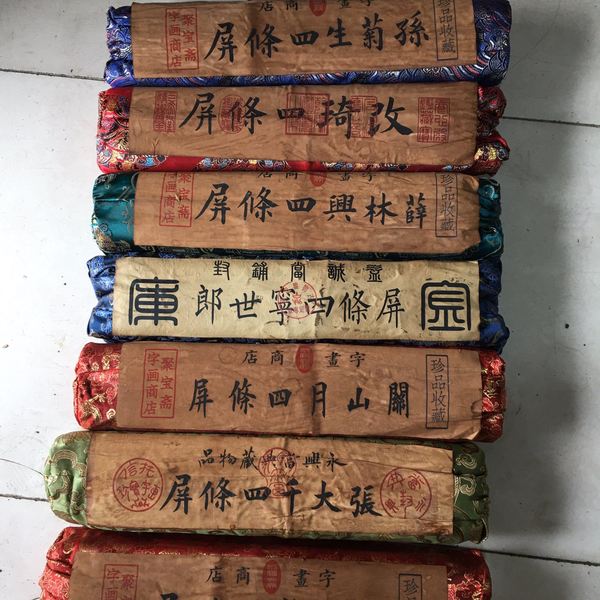 字畫商店
珍品收藏
孫菊生四條屏
聚宝斋
字画商店
改琦四條屏
字畫
珍品收藏
薛林興四條屏
聚宝斋
字画商店
益誠當鋪封
郎世寧四條屏
庫
字畫商店
珍品收藏
關山月四條屏
聚宝斋
字画商店
永興當典藏物品
張大千四條屏
字畫商店